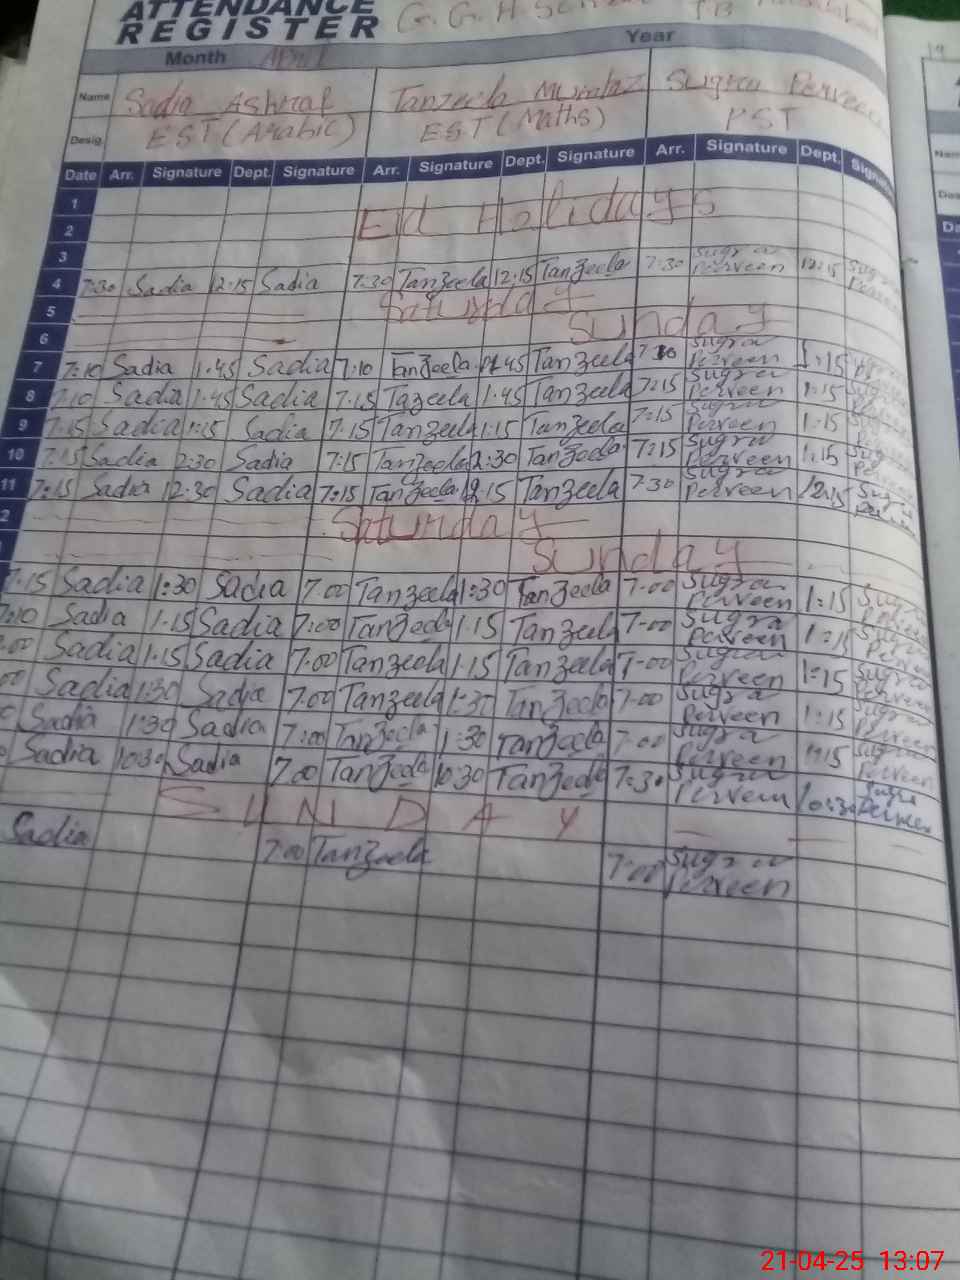 ATTENDANCE
REGISTER G. G. H. School
Month April Year
Name Sadia Ashraf Tanzeela Mumtaz Sugra Perveen
Desig. EST (Arabic) EST (Maths) PST
Date Arr. Signature Dept. Signature Arr. Signature Dept. Signature Arr. Signature Dept. Signature
1
2 Eid Holidays
3
4 7:30 Sadia 12:15 Sadia 7:30 Tanzeela 12:15 Tanzeela 7:30 Sugra Perveen 12:15 Sugra Perveen
5 Saturday
6 Sunday
7 7:10 Sadia 1:45 Sadia 7:10 Tanzeela 1:45 Tanzeela Sugra Perveen 1:15
8 7:10 Sadia 1:45 Sadia 7:15 Tazeela 1:45 Tanzeela 7:15 Sugra Perveen 1:15 Sugra
9 7:15 Sadia 1:15 Sadia 7:15 Tanzeela 1:15 Tanzeela 7:15 Sugra Perveen 1:15 Sugra
10 7:15 Sadia 12:30 Sadia 7:15 Tanzeela 12:30 Tanzeela 7:15 Sugra Perveen 1:15 Sugra
11 7:15 Sadia 12:30 Sadia 7:15 Tanzeela 12:15 Tanzeela 7:30 Sugra Perveen 12:15 Sugra
2 Saturday
Sunday
7:15 Sadia 1:30 Sadia 7:00 Tanzeela 1:30 Tanzeela 7-00 Sugra Perveen 1:15 Sugra
7:10 Sadia 1:15 Sadia 7:00 Tanzeela 1:15 Tanzeela 7-00 Sugra Perveen 1:15 Sugra Perveen
:00 Sadia 1:15 Sadia 7:00 Tanzeela 1:15 Tanzeela 7-00 Sugra Perveen 1:15 Sugra Perveen
00 Sadia 1:30 Sadia 7:00 Tanzeela Tanzeela 7-00 Sugra Perveen 1:15 Sugra Perveen
Sadia 1:30 Sadia 7:00 Tanzeela 1:30 Tanzeela 7-00 Sugra Perveen 1:15 Sugra Perveen
Sadia 10:30 Sadia 7:00 Tanzeela 10:30 Tanzeela 7:30 Sugra Perveen 10:30 Sugra Perveen
SUNDAY
Sadia 7:00 Tanzeela 7:00 Sugra Perveen
21-04-25 13:07